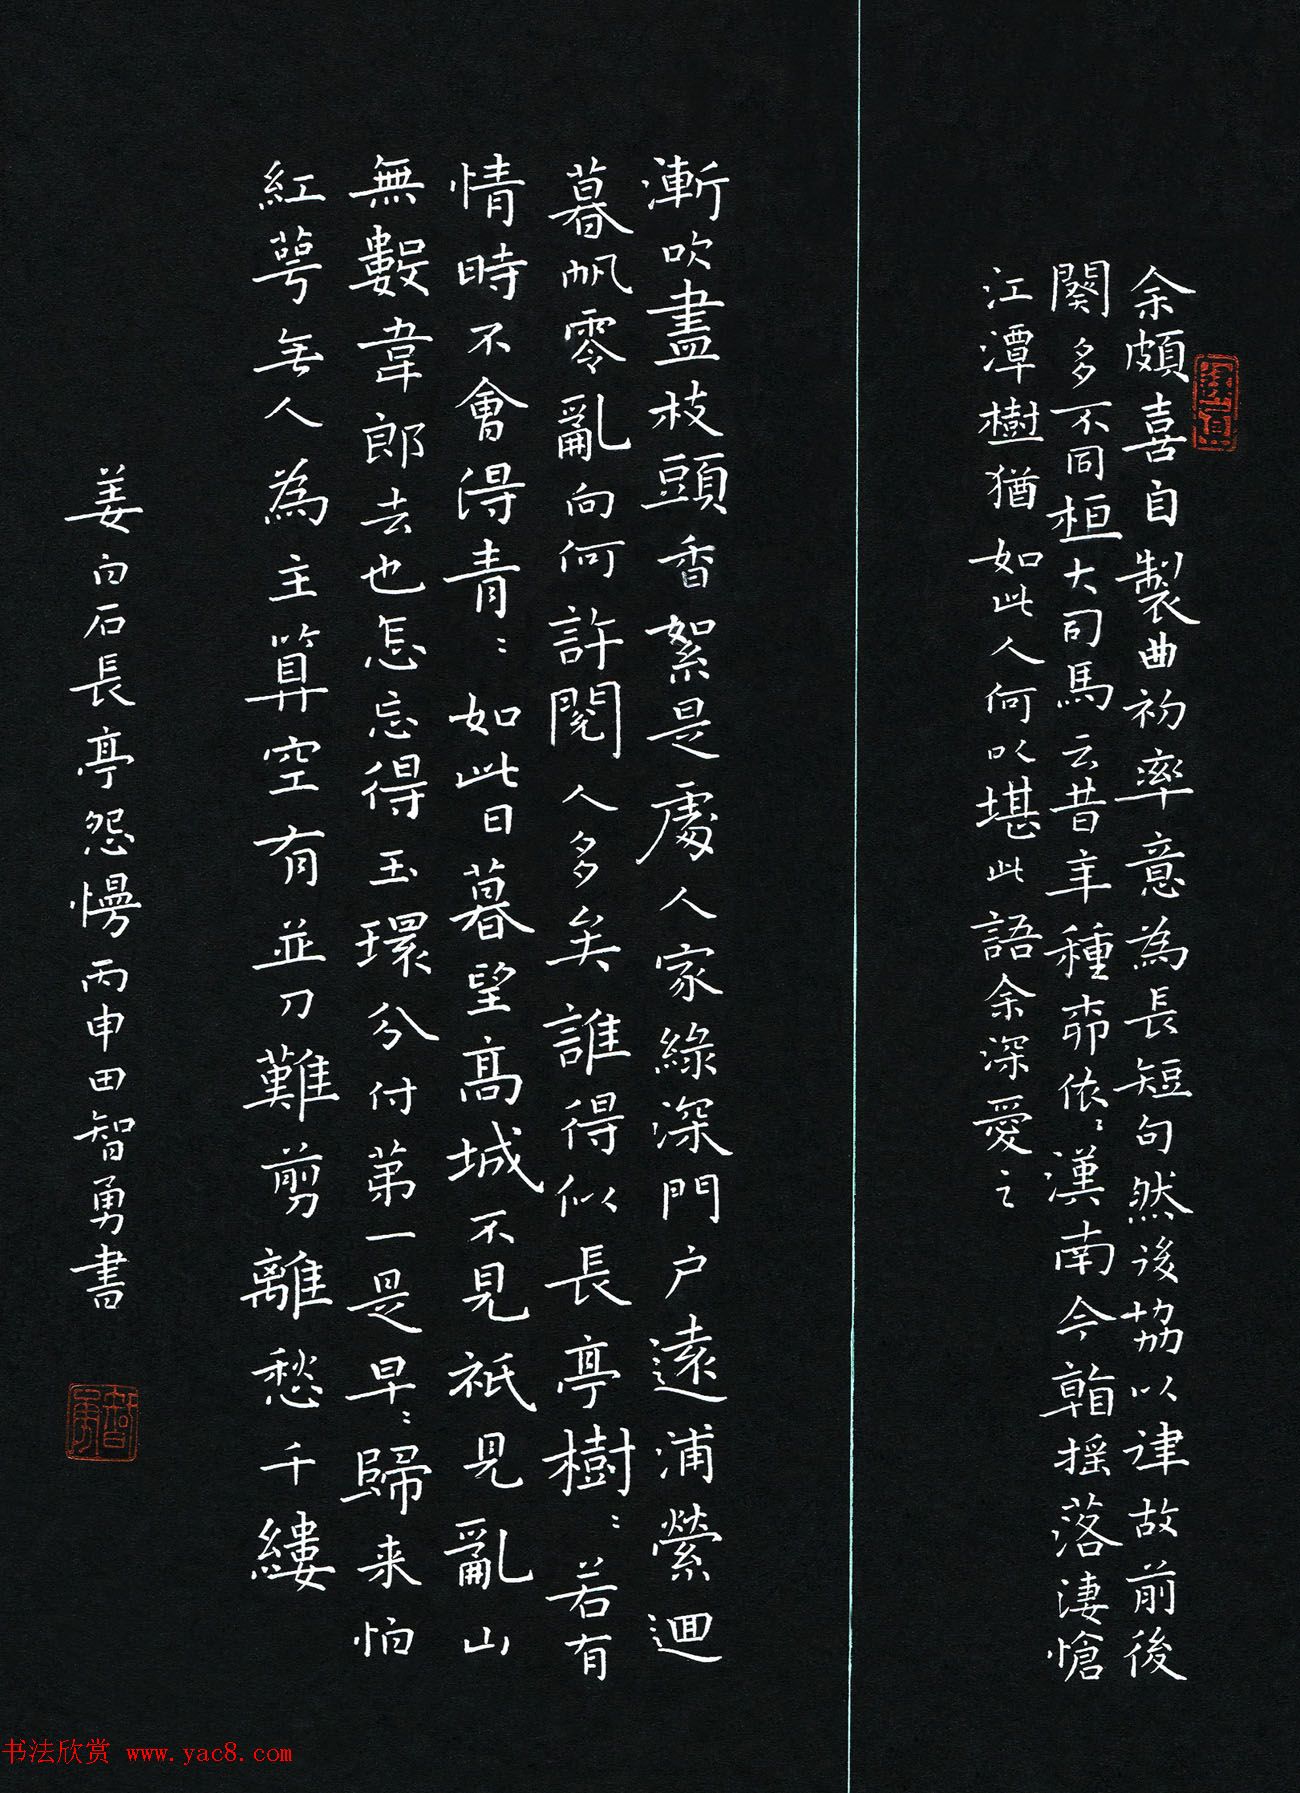 余頗喜自製曲初率意為長短句然後協以律故前後
闋多不同桓大司馬云昔年種桺依〻漢南今看搖落淒愴
江潭樹猶如此人何以堪此語余深愛之
漸吹盡枝頭香絮是處人家綠深門户遠浦縈迴
暮帆零亂向何許閱人多矣誰得似長亭樹〻若有
情時不會得青〻如此日暮望高城不見衹見亂山
無數韋郎去也怎忘得玉環分付第一是早〻歸来怕
紅萼無人為主算空有並刀難剪離愁千縷
姜白石長亭怨慢丙申田智勇書
智勇
书法欣赏 www.yac8.com